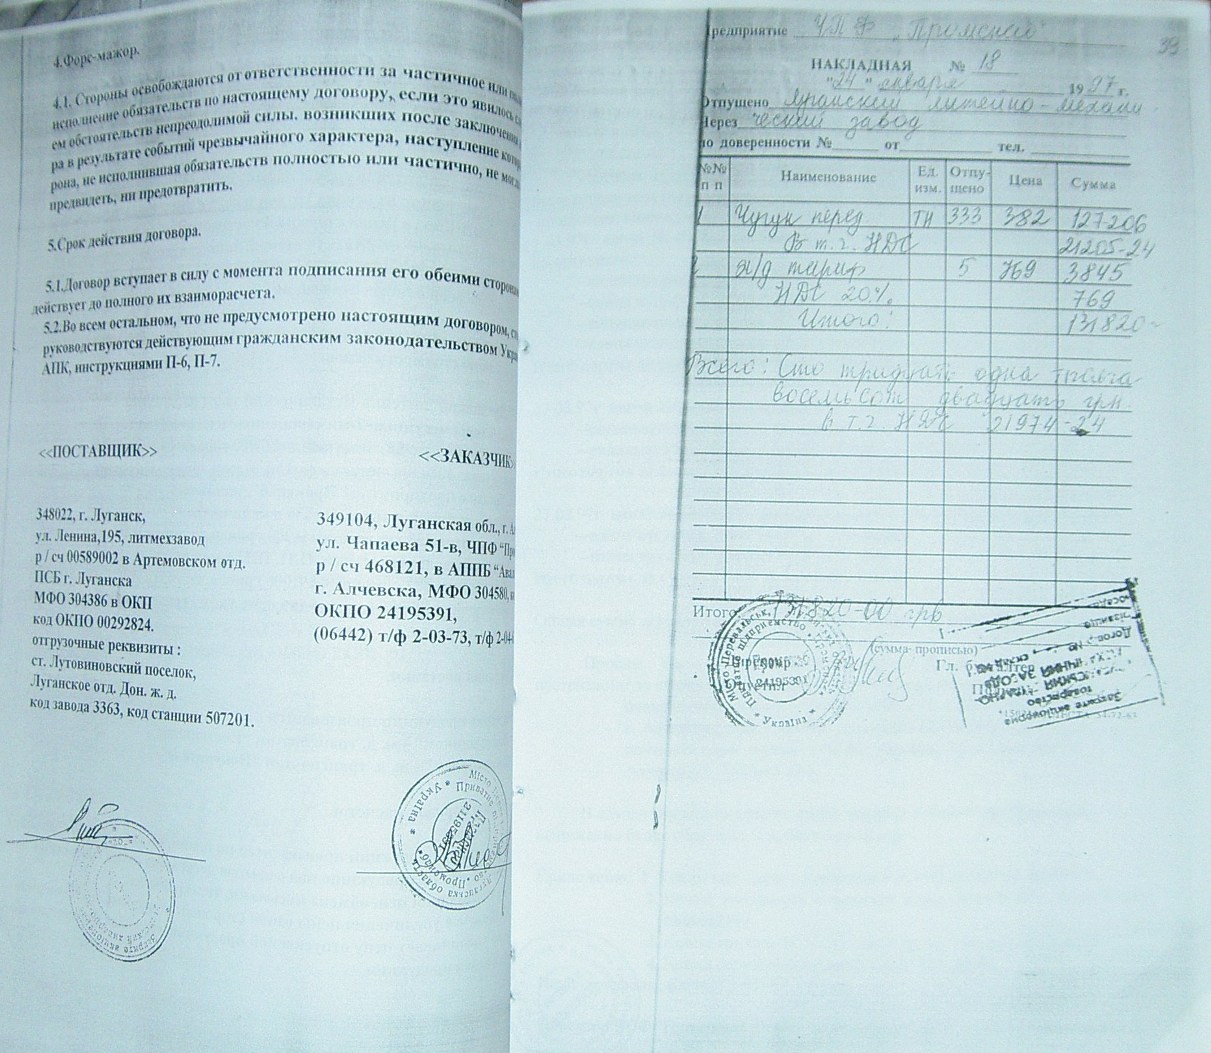 4.Форс-мажор.
4.1. Стороны освобождаются от ответственности за частичное или
исполнение обязательств по настоящему договору, если это явилось
ем обстоятельств непреодолимой силы. возникших после заключения
ра в результате событий чрезвычайного характера, наступление
рона, не исполнившая обязательств полностью или частично, не
предвидеть, ни предотвратить.
5.Срок действия договора.
5.1.Договор вступает в силу с момента подписания его обеими
действует до полного их взаиморасчета.
5.2.Во всем остальном, что не предусмотрено настоящим договором,
руководствуются действующим гражданским законодательством Укра
АПК, инструкциями П-6, П-7.
<<ПОСТАВЩИК>>
<<ЗАКАЗЧИК
348022, г. Луганск,
ул. Ленина,195, литмехзавод
р / сч 00589002 в Артемовском отд.
ПСБ г. Луганска
МФО 304386 в ОКП
код ОКПО 00292824.
отгрузочные реквизиты :
ст. Лутовиновский поселок,
Луганское отд. Дон. ж. д.
код завода 3363, код станции 507201.
349104, Луганская обл., г.
ул. Чапаева 51-в, ЧПФ
р / сч 468121, в АППБ "Ава
г. Алчевска, МФО 304580,
ОКПО 24195391,
(06442) т/ф 2-03-73, т/ф
39
редприятие ЧПФ "Промснаб"
НАКЛАДНАЯ № 18
"24" января 1997 г.
Отпущено Луганский литейно-механи-
Через ческий завод
по доверенности № от тел.
№№ п п Наименование Ед. изм. Отпу- щено Цена Сумма
1 Чугун перед. тн 333 382 127206
В т. ч. НДС 21205-24
2 ж/д тариф 5 769 3845
НДС 20% 769
Итого: 131820-
Всего: Сто тридцать одна тысяча
восемьсот двадцать грн.
в т.ч. НДС 21974-24
Итого 131820-00 грв
(сумма прописью)
Директор
Гл. бухгалтер
24195391
* Україна *